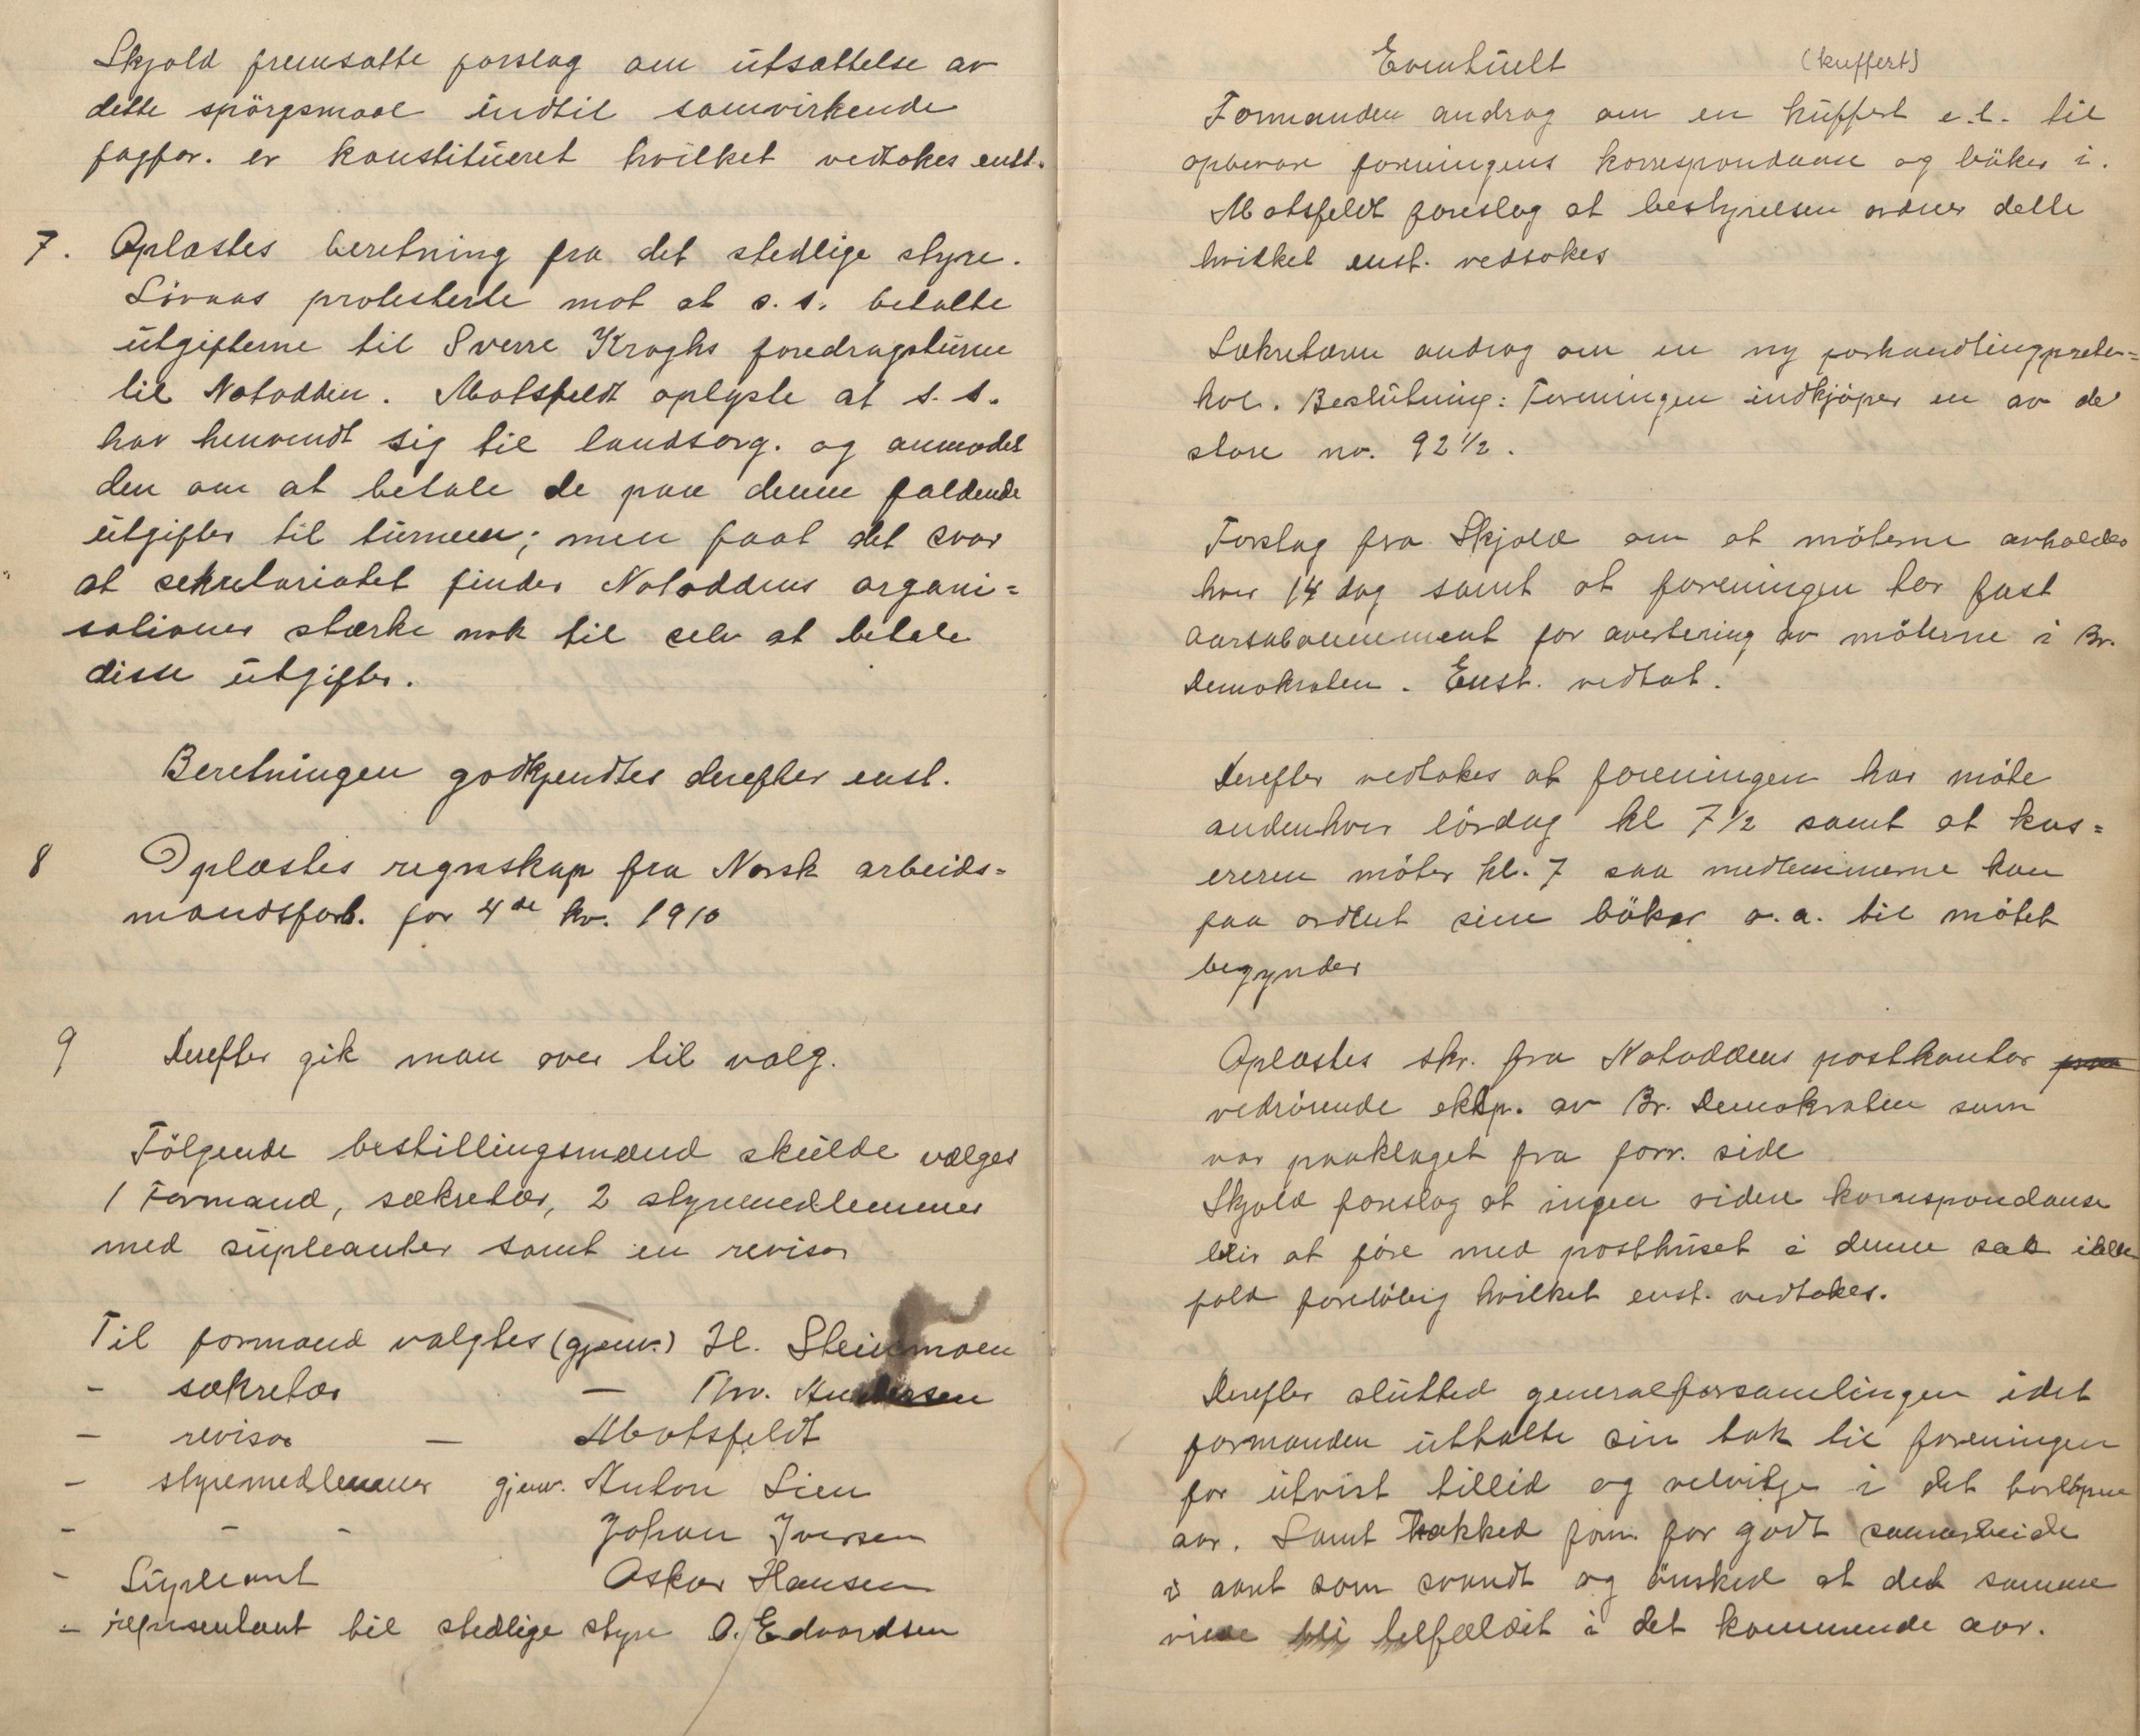 Skjold fremsatte forslag om utsættelse av
dette spörgsmaal indtil samvirkende
fagfor. er konstitueret hvilket vedtokes enst.
7. Oplæstes beretning fra det stedlige styre.
Lövaas protesterte mot at s. s. betalte
utgifterne til Sverre Kroghs foredragsturne
til Notodden. Motsfeldt oplyste at s. s.
har henvendt sig til landsorg. og anmodet
den om at betale de paa denne faldende
utgifter til turneen; men faat det svar
at sekretariatet finder Notoddens organi=
sationer stærke nok til selv at betale
disse utgifter.
Beretningen godkjendtes derefter enst.
8 Oplæstes regnskap fra Norsk arbeids=
mandsforb. for 4de kv. 1910
9 Derefter gik man over til valg.
Fölgende bestillingsmænd skulde vælges
1 Formand, sækretær, 2 styremedlemmer
med supleanter samt en revisor
Til formand valgtes (gjenv.) Hl. Steinmoen
- sækretær — Thv. Andersen
- revisor — Motsfeldt
- styremedlemmer gjenv. Anton Lien
- - - Johan Iversen
- Supleant Oskar Hansen
- representant til stedlige styre O. Edvardsen
Eventuelt (kuffert)
Formanden androg om en kuffert e.l. til
opbevare foreningens korrespondanse og böker i.
Motsfeldt foreslog at bestyrelsen ordner dette
hvilket enst. vedtokes
Sækretæren androg om en ny forhandlingproto=
kol. Beslutning: Foreningen indkjöper en av de
store nr. 92 1/2.
Forslag fra Skjold om at möterne avholdes
hver 14 dag samt at foreningen tar fast
aarsabonnement for avertering av möterne i Br.
Demokraten. Enst. vedtat.
Derefter vedtokes at foreningen har möte
andenhver lördag kl 7 1/2 samt at kas=
ereren möter kl. 7 saa medlemmerne kan
faa ordnet sine böker o. a. til mötet
begynder
Oplæstes skr. fra Notoddens postkontor paa
vedrörende eksp. av Br. Demokraten som
var paaklaget fra forr. side
Skjold foreslog at ingen videre korrespondanse
blir at före med posthuset i denne sak ialle
fald forelöbig hvilket enst. vedtokes.
Derefter slutted generalforsamlingen idet
formanden uttalte sin tak til foreningen
for utvist tillid og velvilje i det forlöpne
aar. Samt takked form. for godt samarbeide
i aaret som svandt og önsked at det samme
vilde bli tilfældet i det kommende aar.